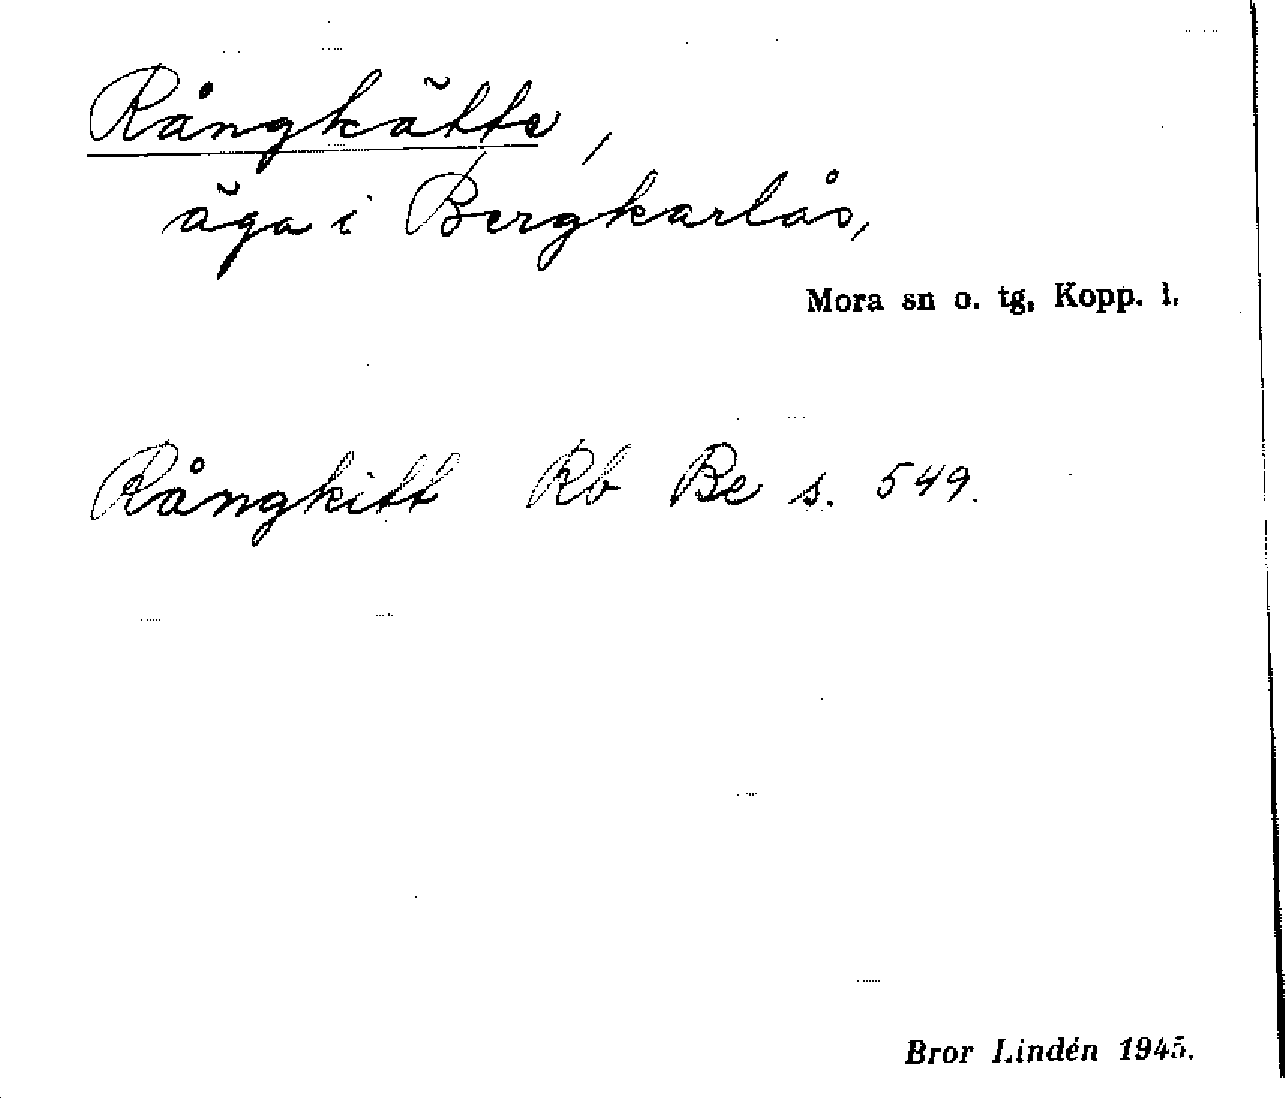 Rångkätte,
äga i Bergkarlås,
Mora sn o. tg, Kopp. l.
Rångkitt Rb Be s. 549.
Bror Lindén 1945.